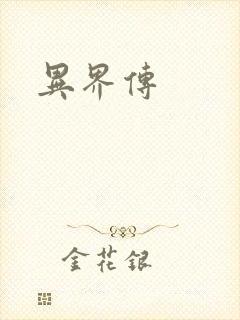 異界傳
金花銀